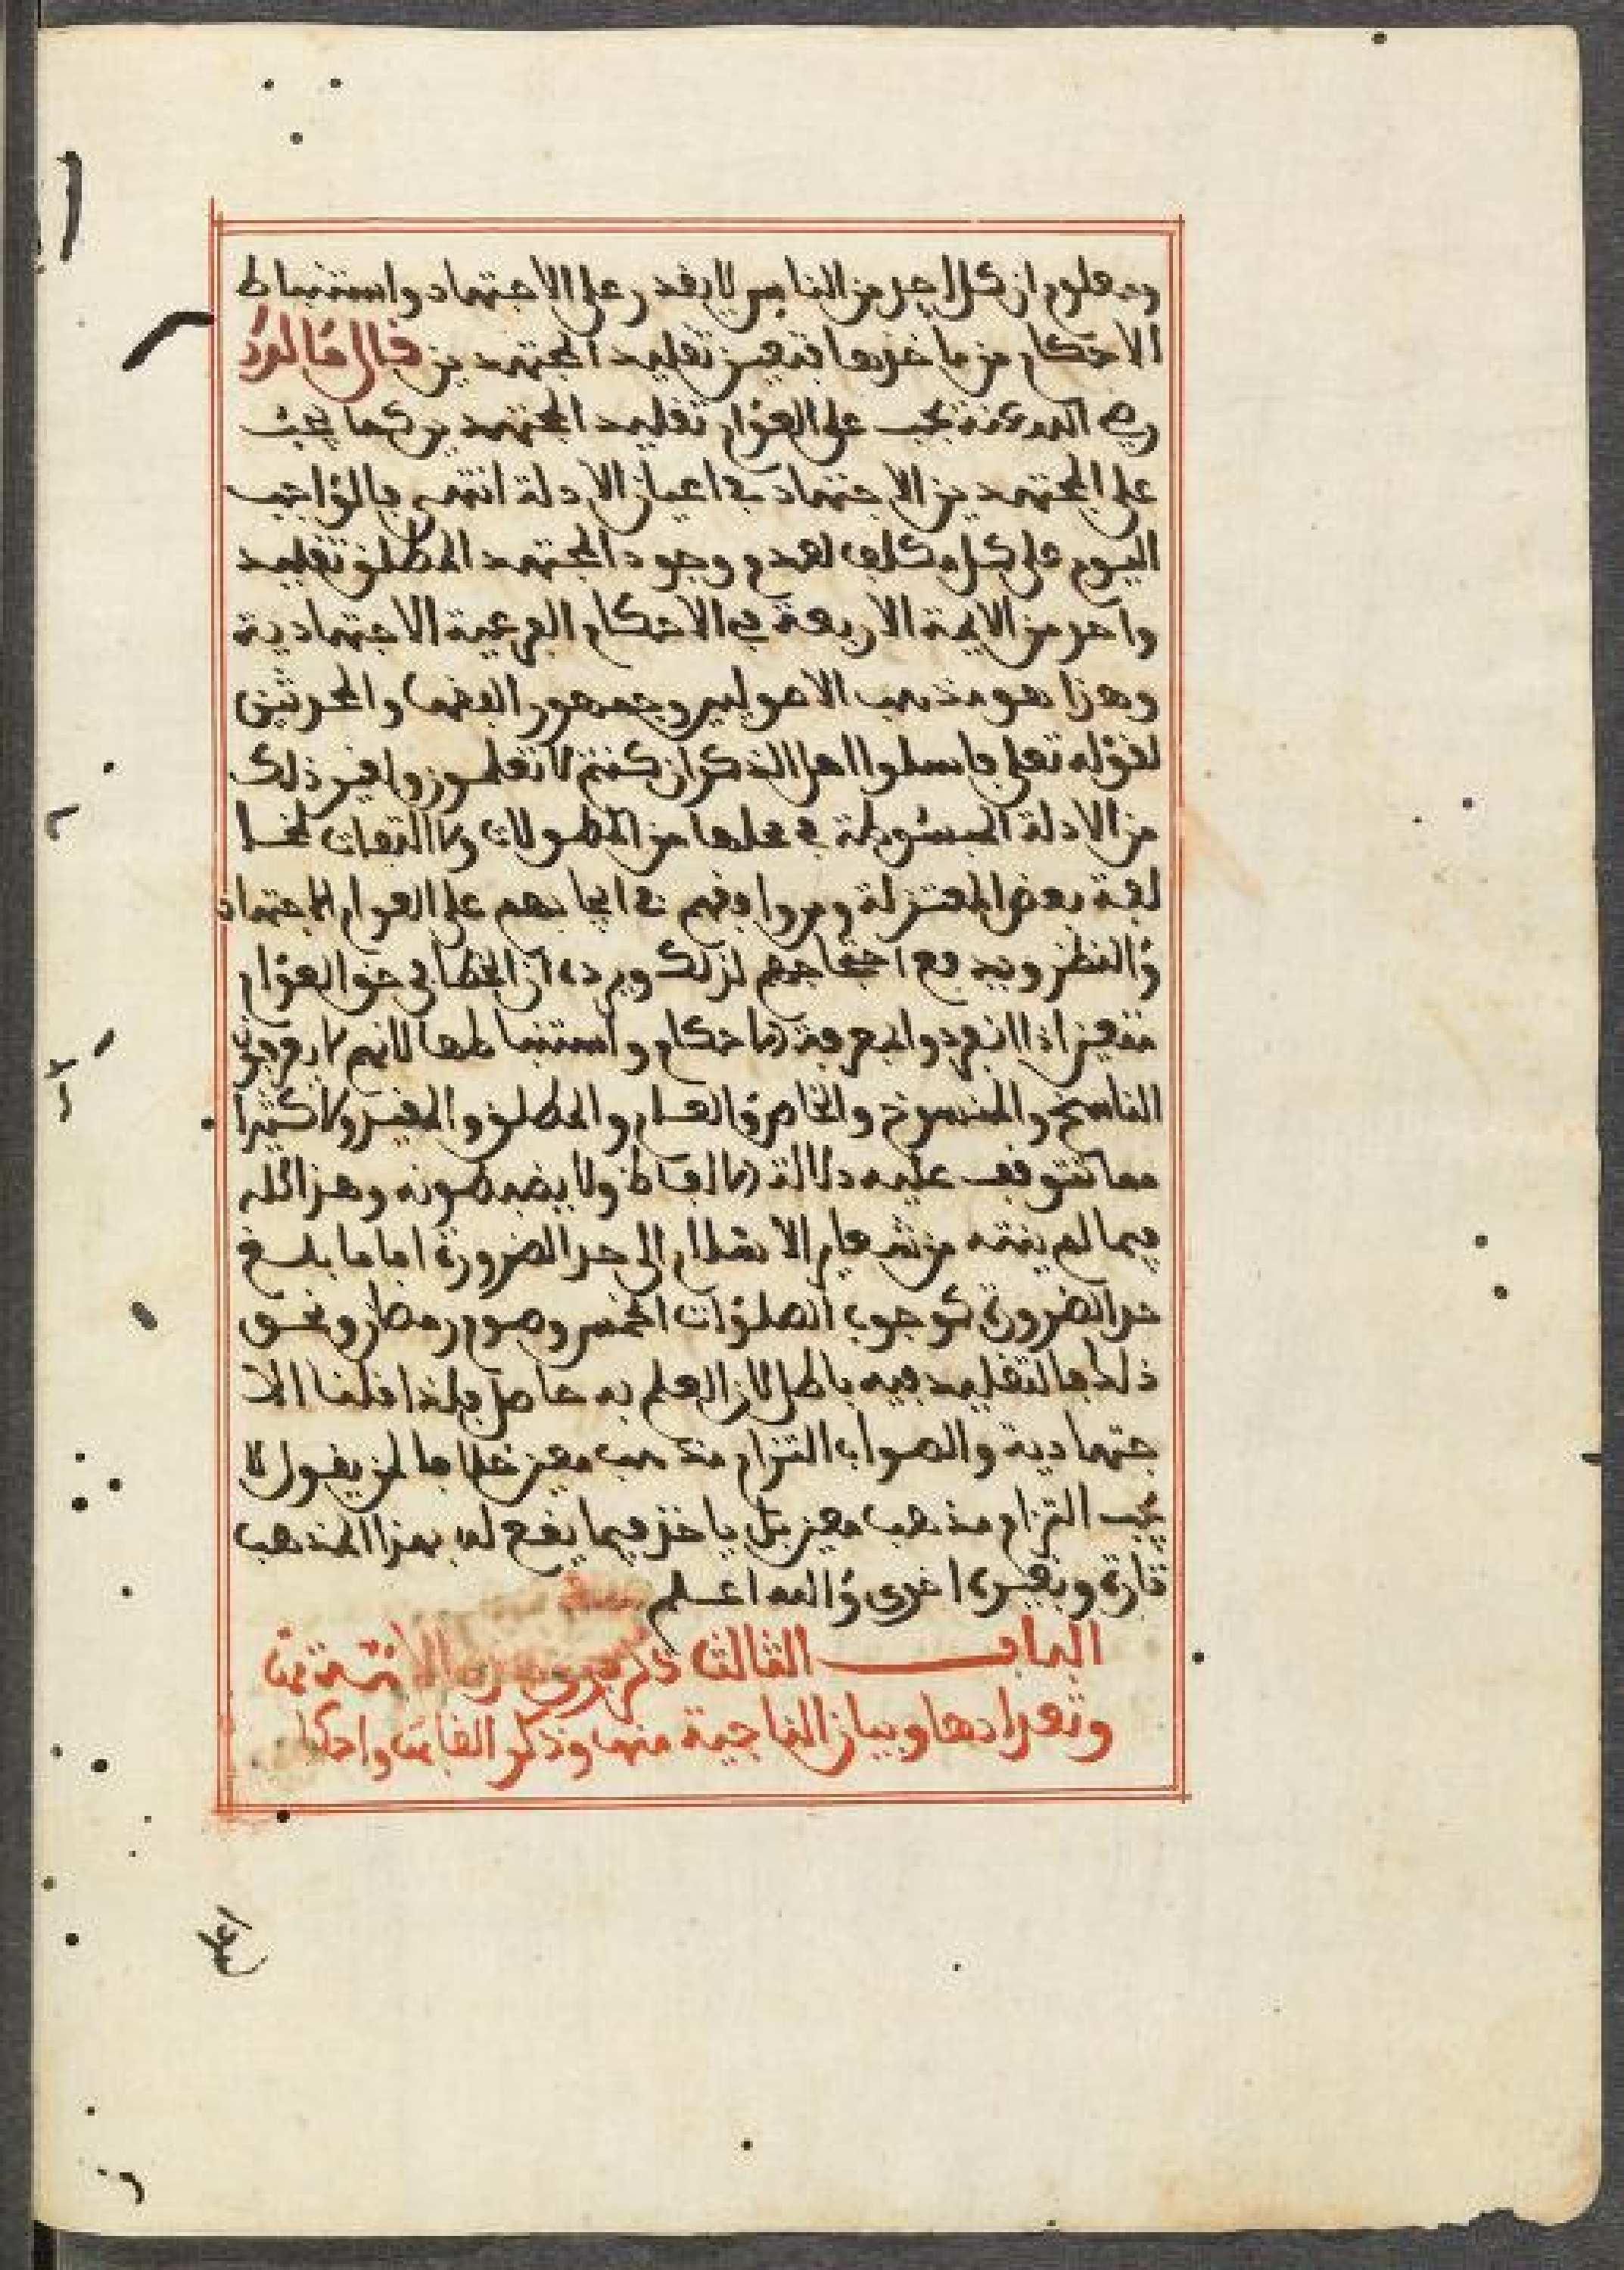 ومعلوم ان كل احد من الناس لا يقدر على الاجتهاد واستنباط
الاحكام من ماخذها فتعين تقليد المجتهدين قال
رضي الله عنه يجب على العوام تقليد المجتهدين كما يجب
على المجتهدين الاجتهاد في اعيان الادلة انتهى فالواجب
اليوم على كل مكلف لعدم وجود المجتهد المطلق تقليد
واحد من الايمة الاربعة في الاحكام الفرعية الاجتهادية
وهذا هو مذهب الاصوليين وجمهور الفقهاء والمحدثين
لقوله تعلى فاسلوا اهل الذكر ان كنتم لا تعلمون والغير ذلك
من الادلة المبسوطة في محلها من المطولات ولا التفات لمخا
لفة بعض المعتزلة ومن وافقهم في ايجابهم على العوام الاجتهاد
والنظر ويدفع احتجاجهم لذلك ويرده ان الخطا في حق العوام
متعين اذا انفردوا لمعرفة الاحكام واستنباطها لانهم لا يعرفون
الناسخ والمنسوخ والخاص والعام والمطلق والمقيد ولا كثيرا
مما تتوقف عليه دلالة الالفاظ ولا يضبطونه وهذا كله
فيما لم ينته من شرعام الاسلام الى حد الضرورة اما ما بلغ
حد الضرورة كوجوب الصلوات الخمس وصوم رمضان ونحو
ذلك فالتقليد فيه باطل لان العلم به حاصل فلذا قلنا الا
جتهادية والصواب التزام مذهب معين خلافا لمن يقول لا
يجب التزام مذهب معين بل ياخذ فيما يقع له بهذا المذهب
تارة وبغيره اخرى والله اعلم
الباب الثالث فرق هذه الامة
وتعدادها وبيان الناجية منها وذكر